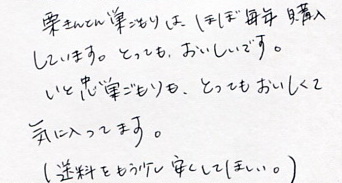 栗きんとん巣ごもりは、ほぼ毎年購入
しています。とっても、おいしいです。
いと忠巣ごもりも、とってもおいしくて
気に入ってます。
(送料をもう少し安くしてほしい。)